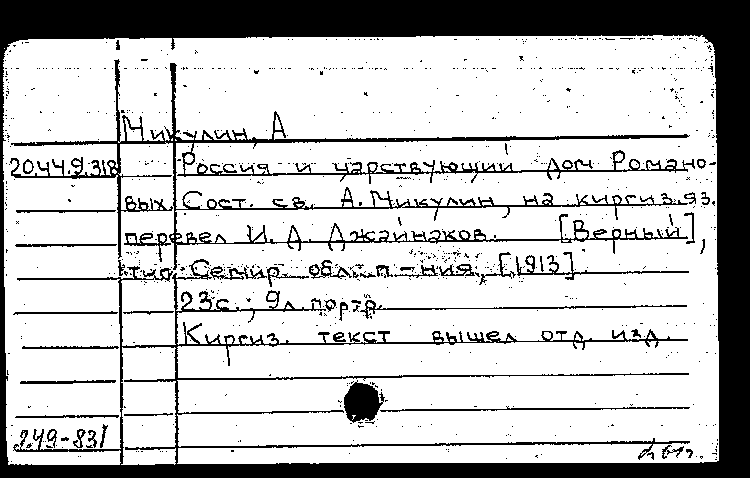 Микулин, А
20.44.9.318 Россия и царствующий дом Романо-
вых. Сост. св. А. Микулин, на киргиз.яз.
перевел И. А. Джайнаков. [Верный],
тип. Семир. обл. п-ния, [1913].
23с.; 9л. портр.
Киргиз. текст вышел отд. изд.
249-831